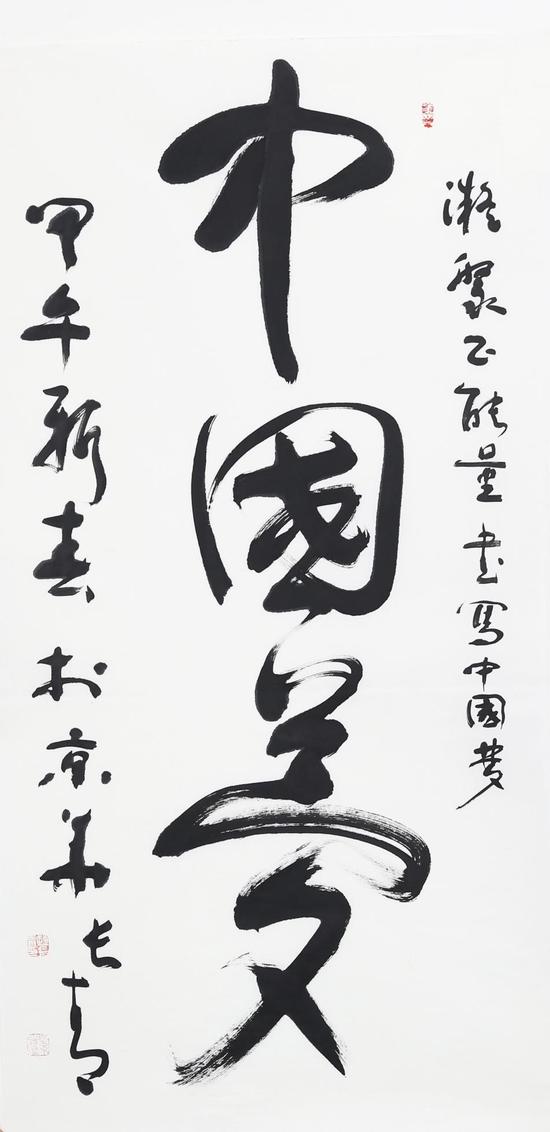 凝聚正能量 書寫中國夢
中國夢
甲午新春 於京華 長青